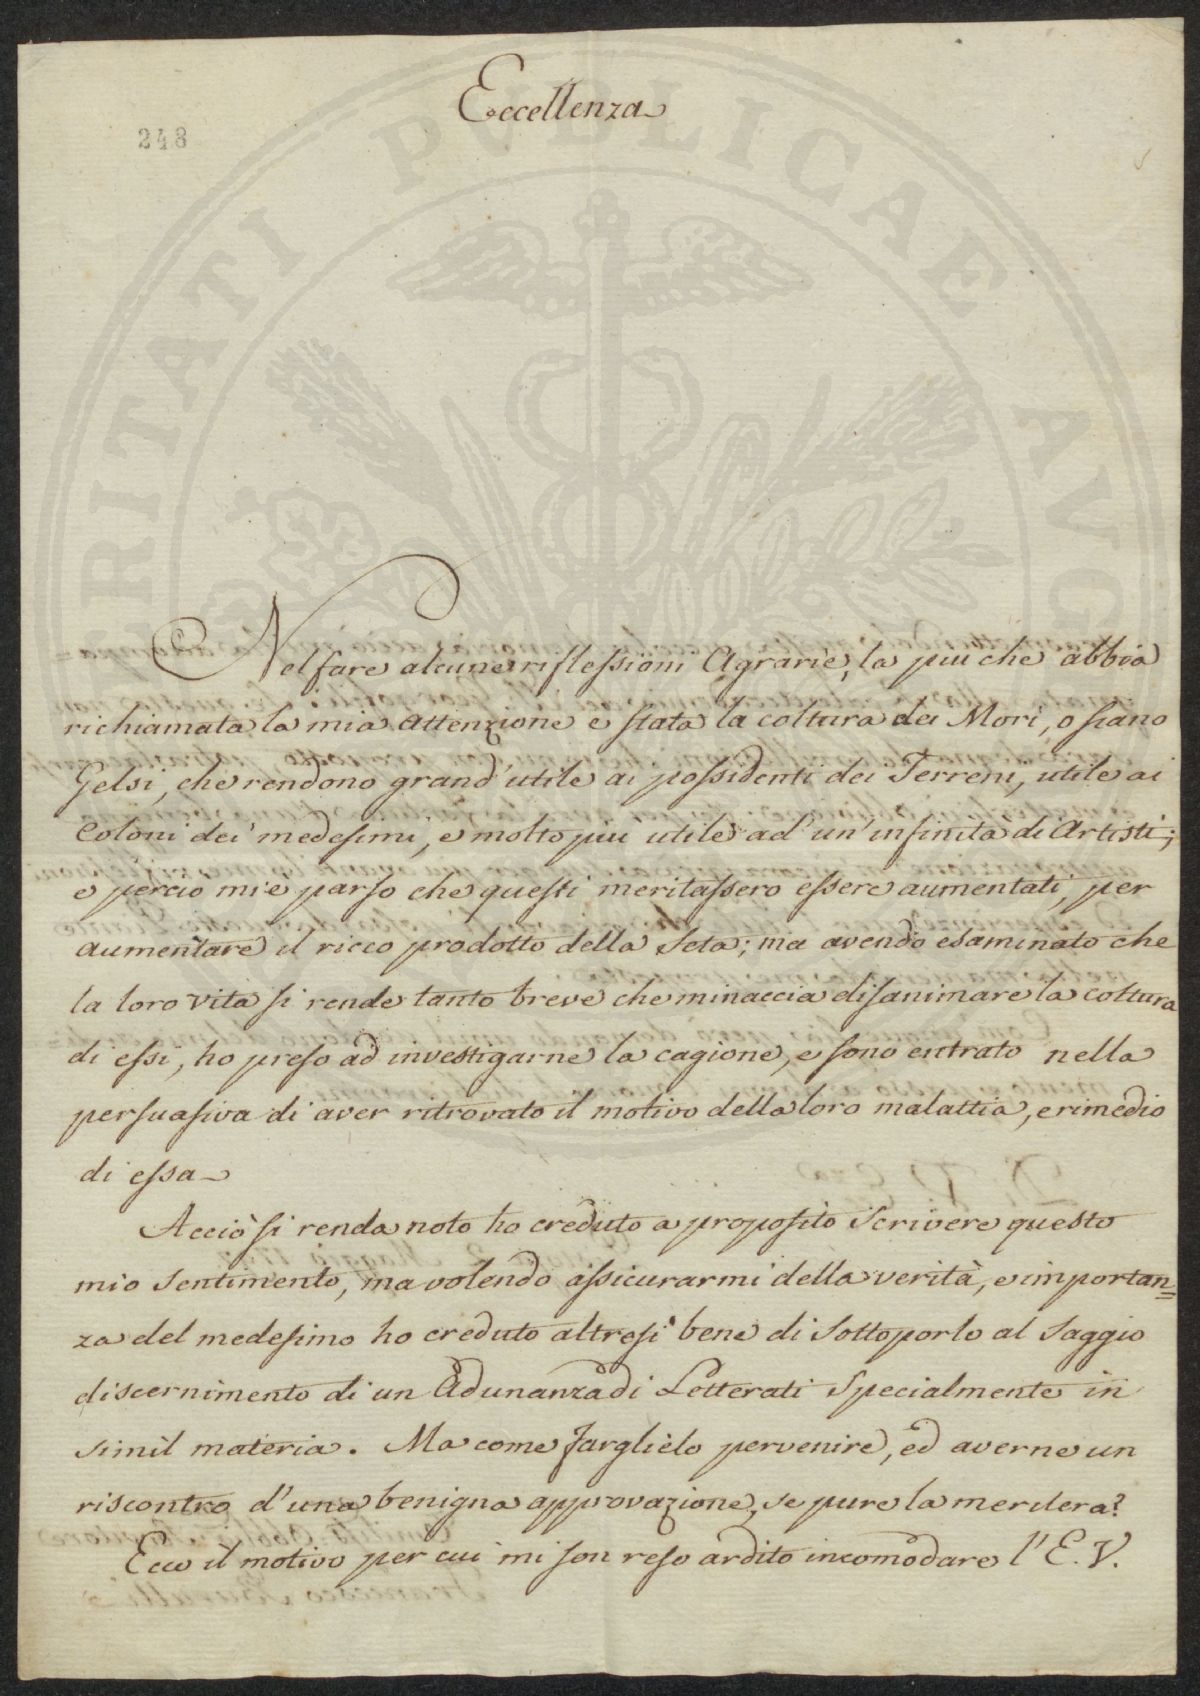 Eccellenza
248
Nel fare alcune riflessioni Agrarie, la piu che abbia
richiamata la mia attenzione e stata la coltura dei Mori, o siano
Gelsi, che rendono grand'utile ai possidenti dei Terreni, utile ai
Coloni dei medesimi, e molto piu utile ad un'infinità di Artisti;
e percio mi e parso che questi meritassero essere aumentati, per
aumentare il ricco prodotto della Seta; ma avendo esaminato che
la loro vita si rende tanto breve che minaccia disanimare la coltura
di essi, ho preso ad investigarne la cagione, e sono entrato nella
persuasiva di aver ritrovato il motivo della loro malattia, e rimedio
di essa
Acciò si renda noto ho creduto a proposito scrivere questo
mio sentimento, ma volendo assicurarmi della verità, e importan=
za del medesimo ho creduto altresi bene di sottoporlo al saggio
discernimento di un Adunanza di Letterati specialmente in
simil materia. Ma come farglielo pervenire, ed averne un
riscontro d'una benigna approvazione, se pure la meritera?
Ecco il motivo per cui mi son reso ardito incomodare l'E.V.
PUBLICAE